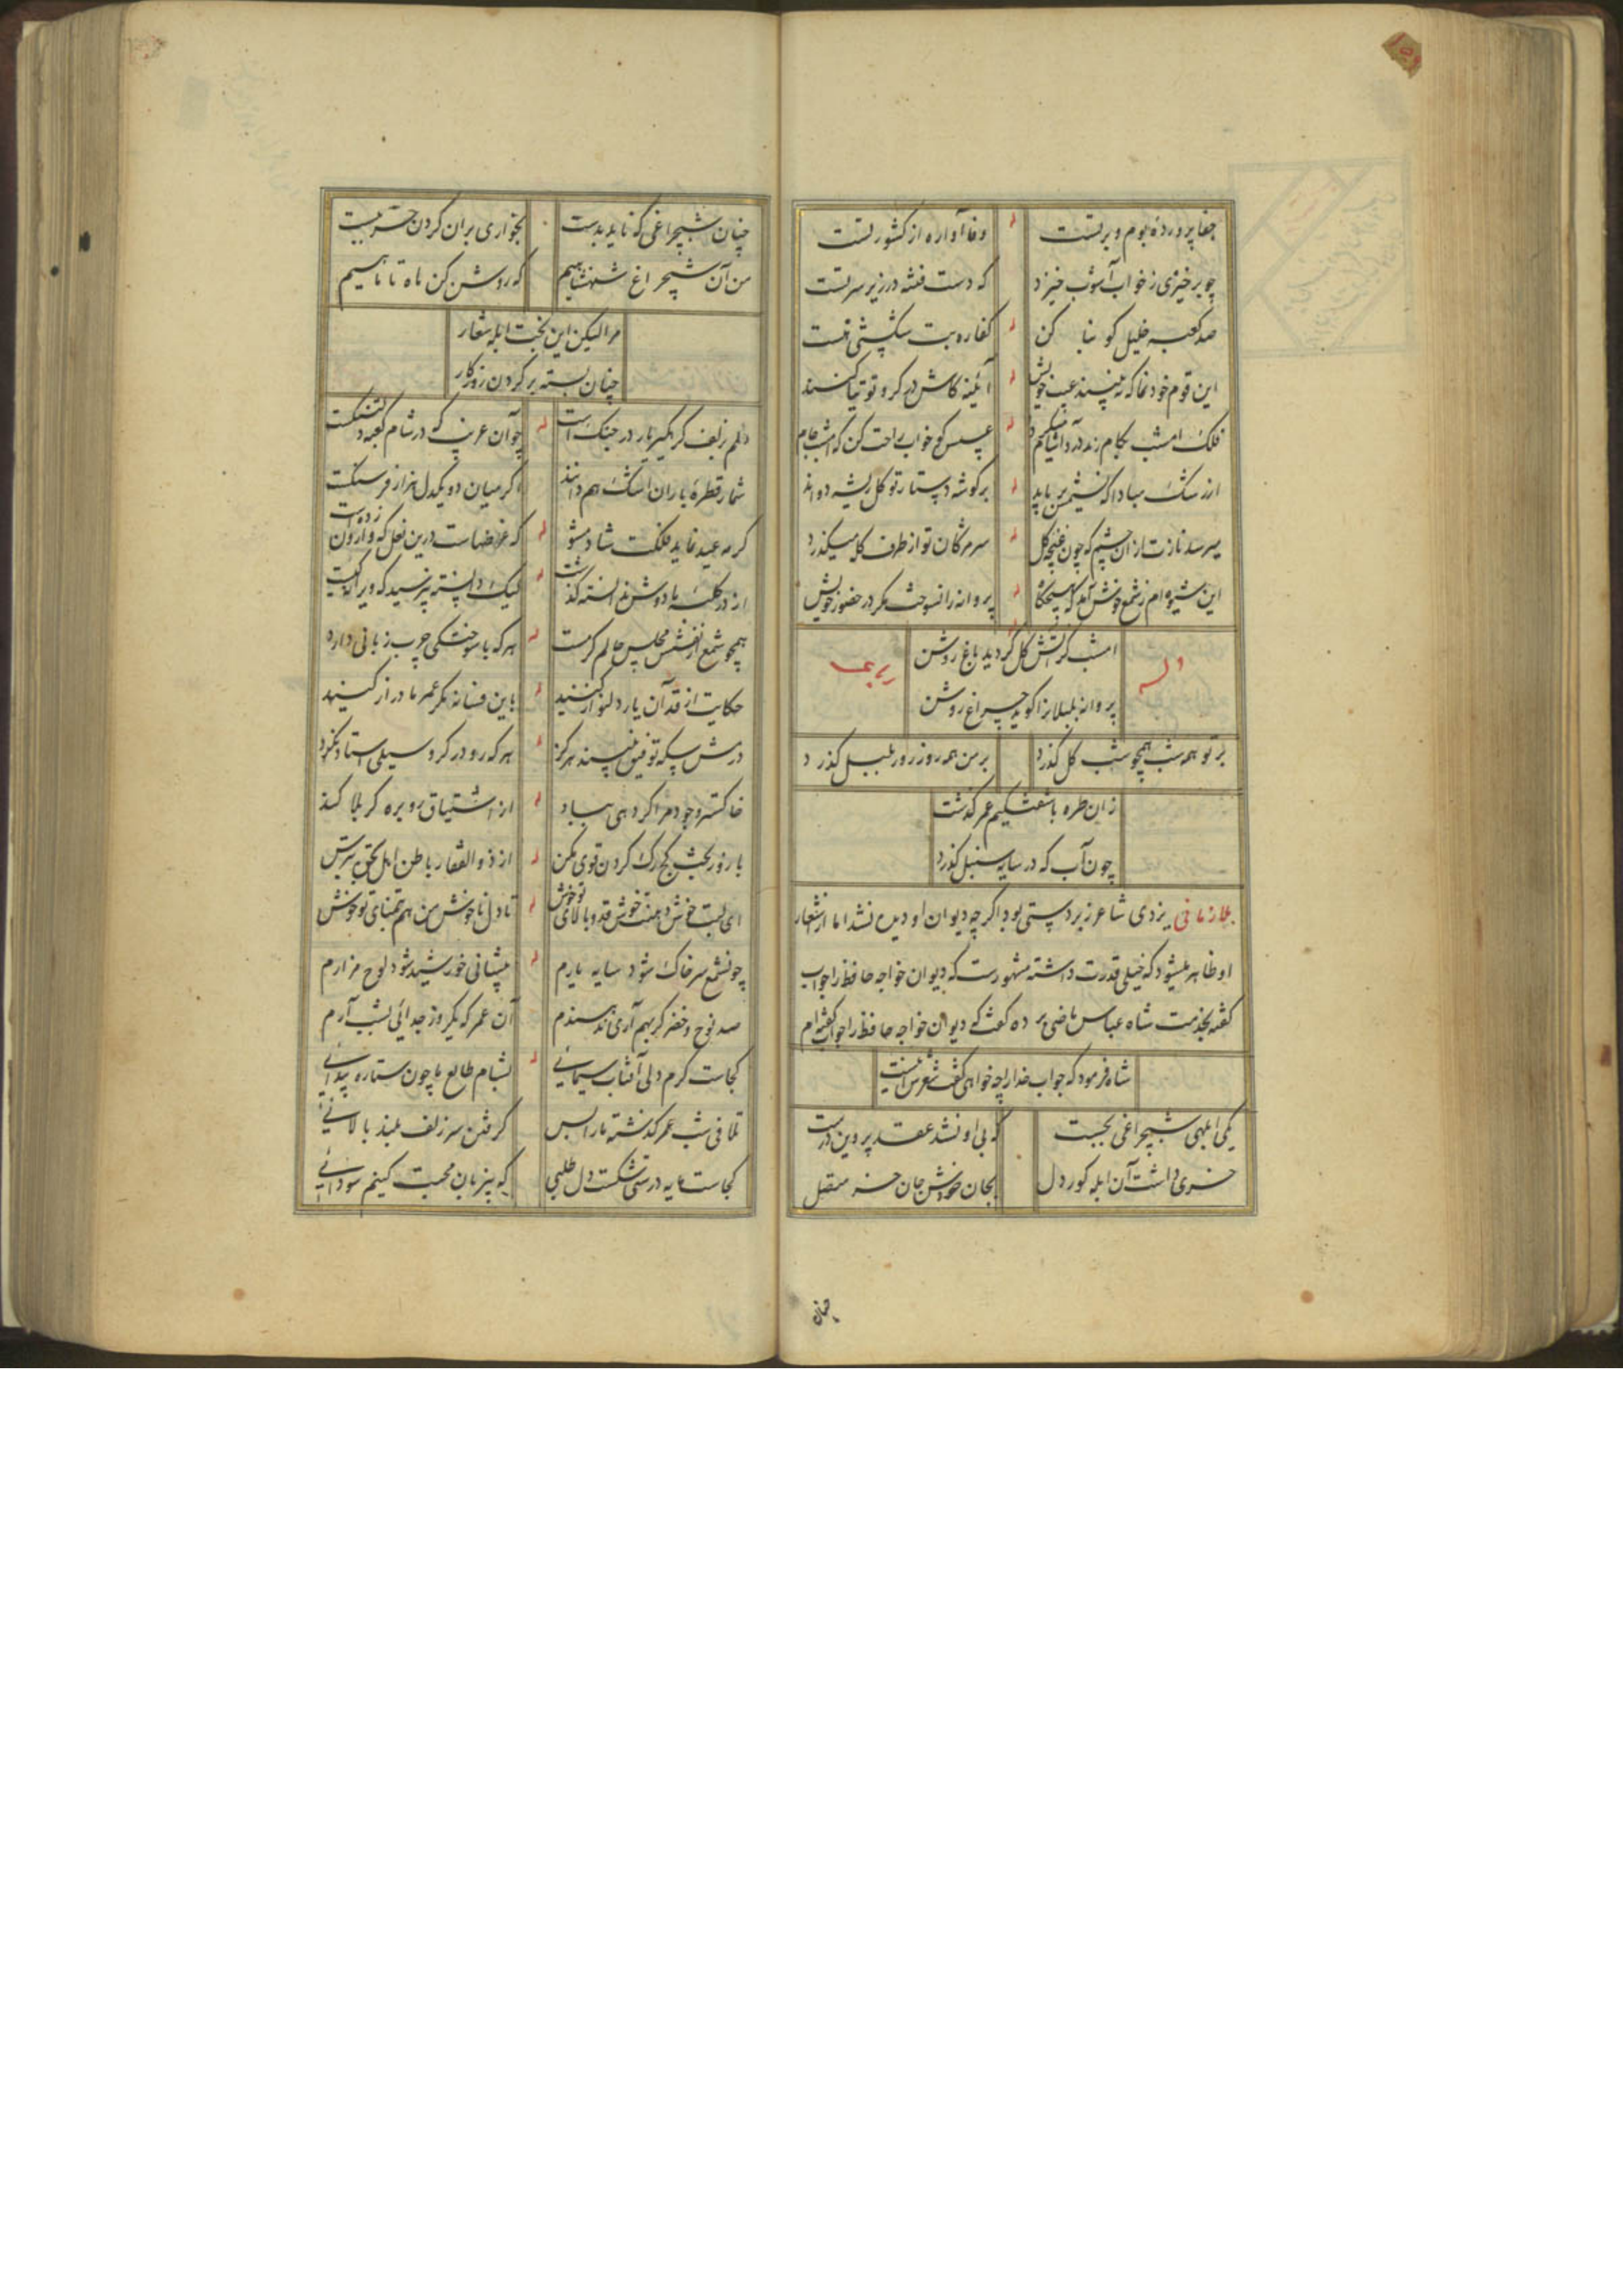 جفا پرورده بوم و بر تست وفا آواره از کشور تست
چو برخیزی ز خواب آشوب خیزد که دست فتنه در زیر سر تست
صد کعبه خلیل کو بنا کن کفاره بت شکستنی نیست
این قوم خودنما که نه‌بینند عیب خویش آئینه کاش در کرو توتیا کنند
فلک امشب بکام رند دردآشام میکردد عسس کو خواب راحت کن که امشب جام
ار زشک مبادا که نشیمن برباید بر کوشه دستار تو کل ریشه دواند
میرسد نازت از آن چشم که چون غنچه کل سر مژکان تو از طرف کله میکذرد
این شیوه‌ام ز شمع خوش آمد که هیچکاه پروانه را نسوخت مکر در حضور خویش
وله رباعی
امشب کز آتش کل کردید باغ روشن
پروانه بلبلانرا کوید چراغ روشن
بر تو همه شب همچو شب کل کذرد بر من همه روز روز بلبل کذرد
زان طره باشفتکیم عمر کذشت
چون آب که در سایه سنبل کذرد
ملا زمانی یزدی شاعر زبردستی بود اکرچه دیوان او دیده نشد اما از اشعار
او ظاهر میشود که خیلی قدرت داشته مشهورست که دیوان خواجه حافظ را جواب
کفته بخدمت شاه عباس ماضی برده کفت که دیوان خواجه حافظ را جواب کفته‌ام
شاه فرمود که جواب خدا را چه خواهی کفت شعرش اینست
یکی ابلهی شبچراغی بجست که بی او نشد عقد پروین درست
خری داشت آن ابله کور دل بجان خودش جان خر متصل
چنان
چنان شبچراغی که ناید بدست بخواری بران کردن خر ببست
من آن شبچراغ شهنشاهیم که روشن کن ماه تا ماهیم
مرا لیکن این بخت ابله شعار
چنان بسته بر کردن روزکار
دلم ز زلف کرهکیر یار در جنک است چو آن غریب که در شام کعبه دلتنکست
شمار قطره باران اشک هم دانند اکر میان دو یکدل هزار فرسنکست
کر مه عید نماید فلکت شاد مشو که غرضهاست درین نعل که وارون زده است
از در کلبه ما دوش ندانسته کذشت لیک دانسته نپرسید که ویرانه کیست
همچو شمع از نفسش مجلس عالم کرمست هر که با سوختکی چرب زبانی دارد
حکایت از قد آن یار دلنواز کنید باین فسانه مکر عمر ما دراز کنید
درش بسکه توفیق نپسند هرکز هر که رو در کرو سیلی استاد نکرد
خاکستر وجود مرا کر دهی بباد از اشتیاق رو بره کربلا کند
با زور بحث کج رک کردن قوی مکن از ذوالفقار باطن اهل حق بترس
ای لبت خوش دهنت خوش قد و بالای تو خوش تا دل ناخوش من هم بتمنای تو خوش
چو شمع سر خاک شود سایه یارم پیشانی خورشید شود لوح مزارم
صد نوح و خضر کر بهم آری ندهندم آن عمر که یکروز جدائی بشب آرم
کجاست کرم دلی آفتاب سیمائی بشام طالع ما چون ستاره پیدائی
تلافی شب عمر کذشته ما را بس کرفتن سر زلف بلند بالائی
کجاست مایه درستی شکست دل طلبی که بر زبان محبت کنیم سودائی